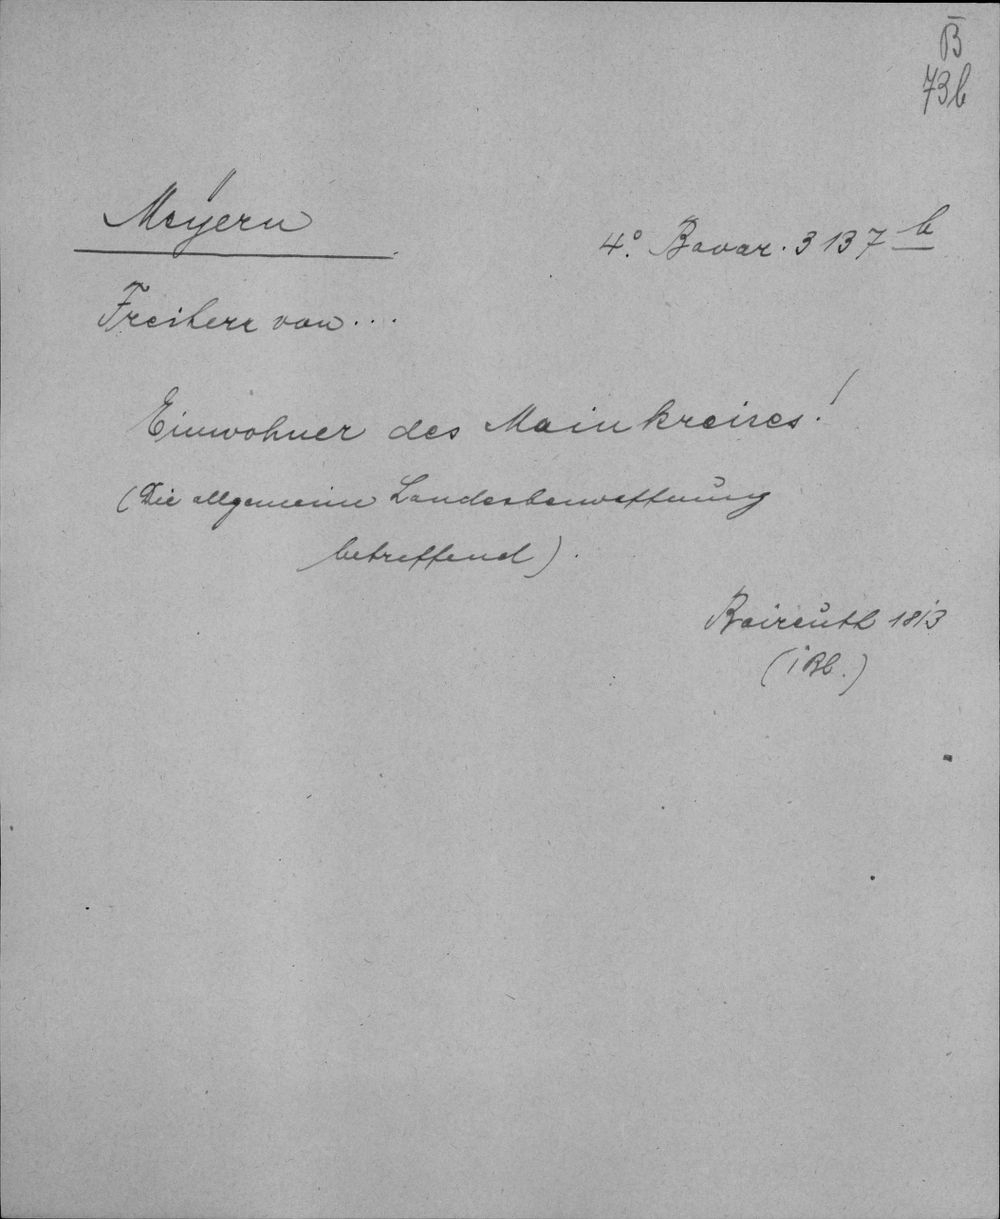 B
73b
Meÿern
4.° Bavar. 3137 b
Freiherr von ...
Einwohner des Mainkreises!
(Die allgemeine Landesbewaffnung
betreffend).
Baireuth 1813
(1 Bl.)